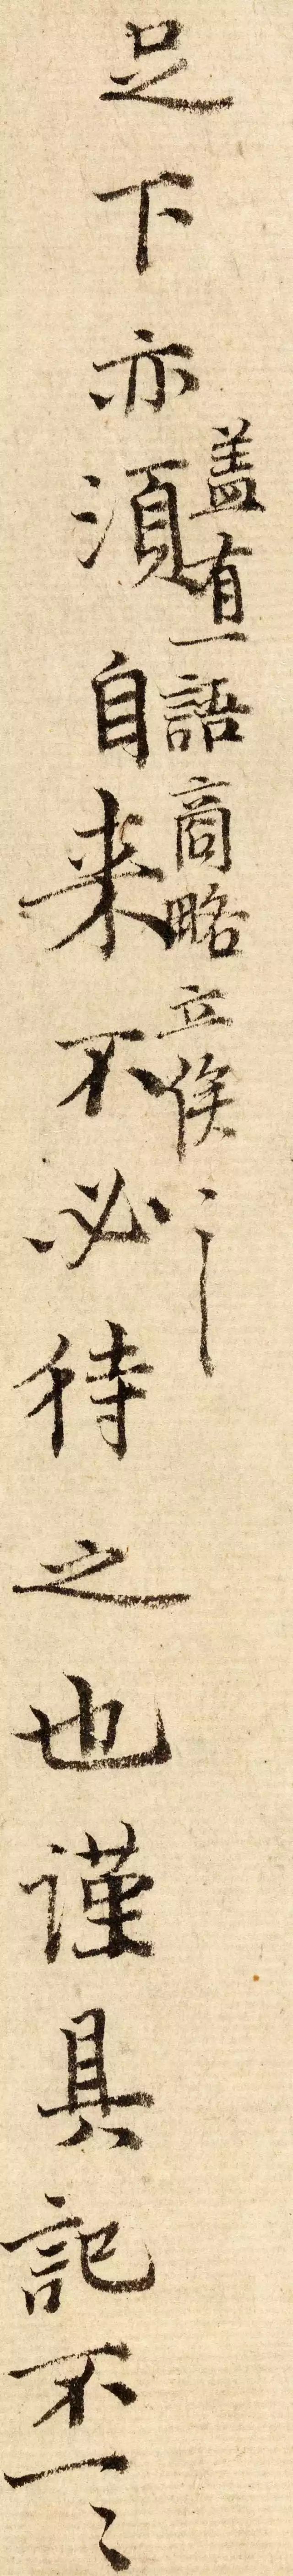 足下亦須自来不必待之也謹具記不一々
盖有一語商略立俟〻